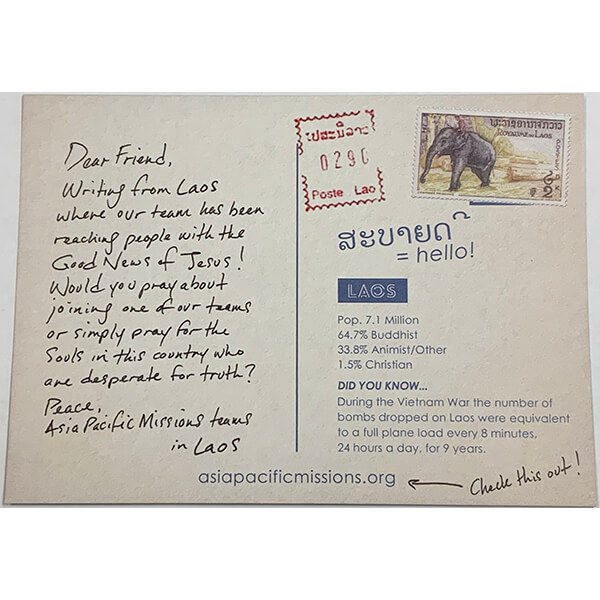 Dear Friend,
Writing from Laos
where our team has been
reaching people with the
Good News of Jesus!
Would you pray about
joining one of our teams
or simply pray for the
Souls in this country who
are desperate for truth?
Peace,
Asia Pacific Missions teams
in Laos
0290
Poste Lao
ROYAUME DU LAOS
ສະບາຍດີ
= hello!
LAOS
Pop. 7.1 Million
64.7% Buddhist
33.8% Animist/Other
1.5% Christian
DID YOU KNOW...
During the Vietnam War the number of
bombs dropped on Laos were equivalent
to a full plane load every 8 minutes,
24 hours a day, for 9 years.
asiapacificmissions.org
Check this out!